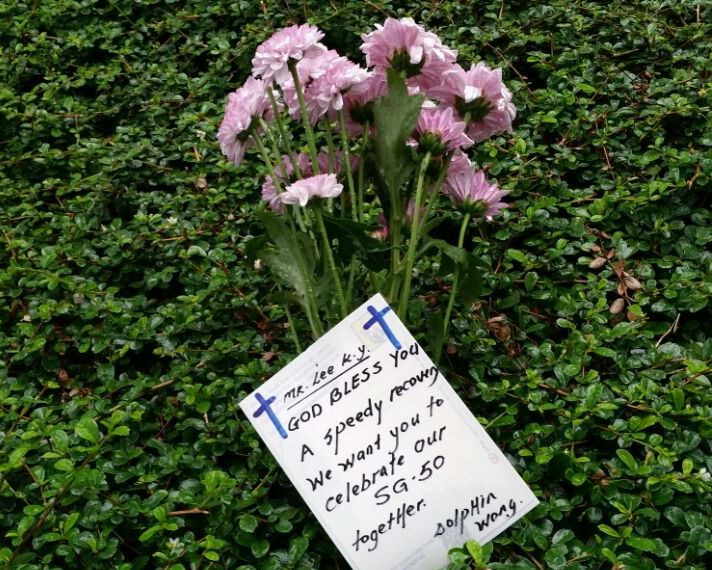 MR. Lee K.Y.
GOD BLESS YOU
A speedy recovery
We want you to
celebrate our
SG-50
together.
Dolphin
Wong.